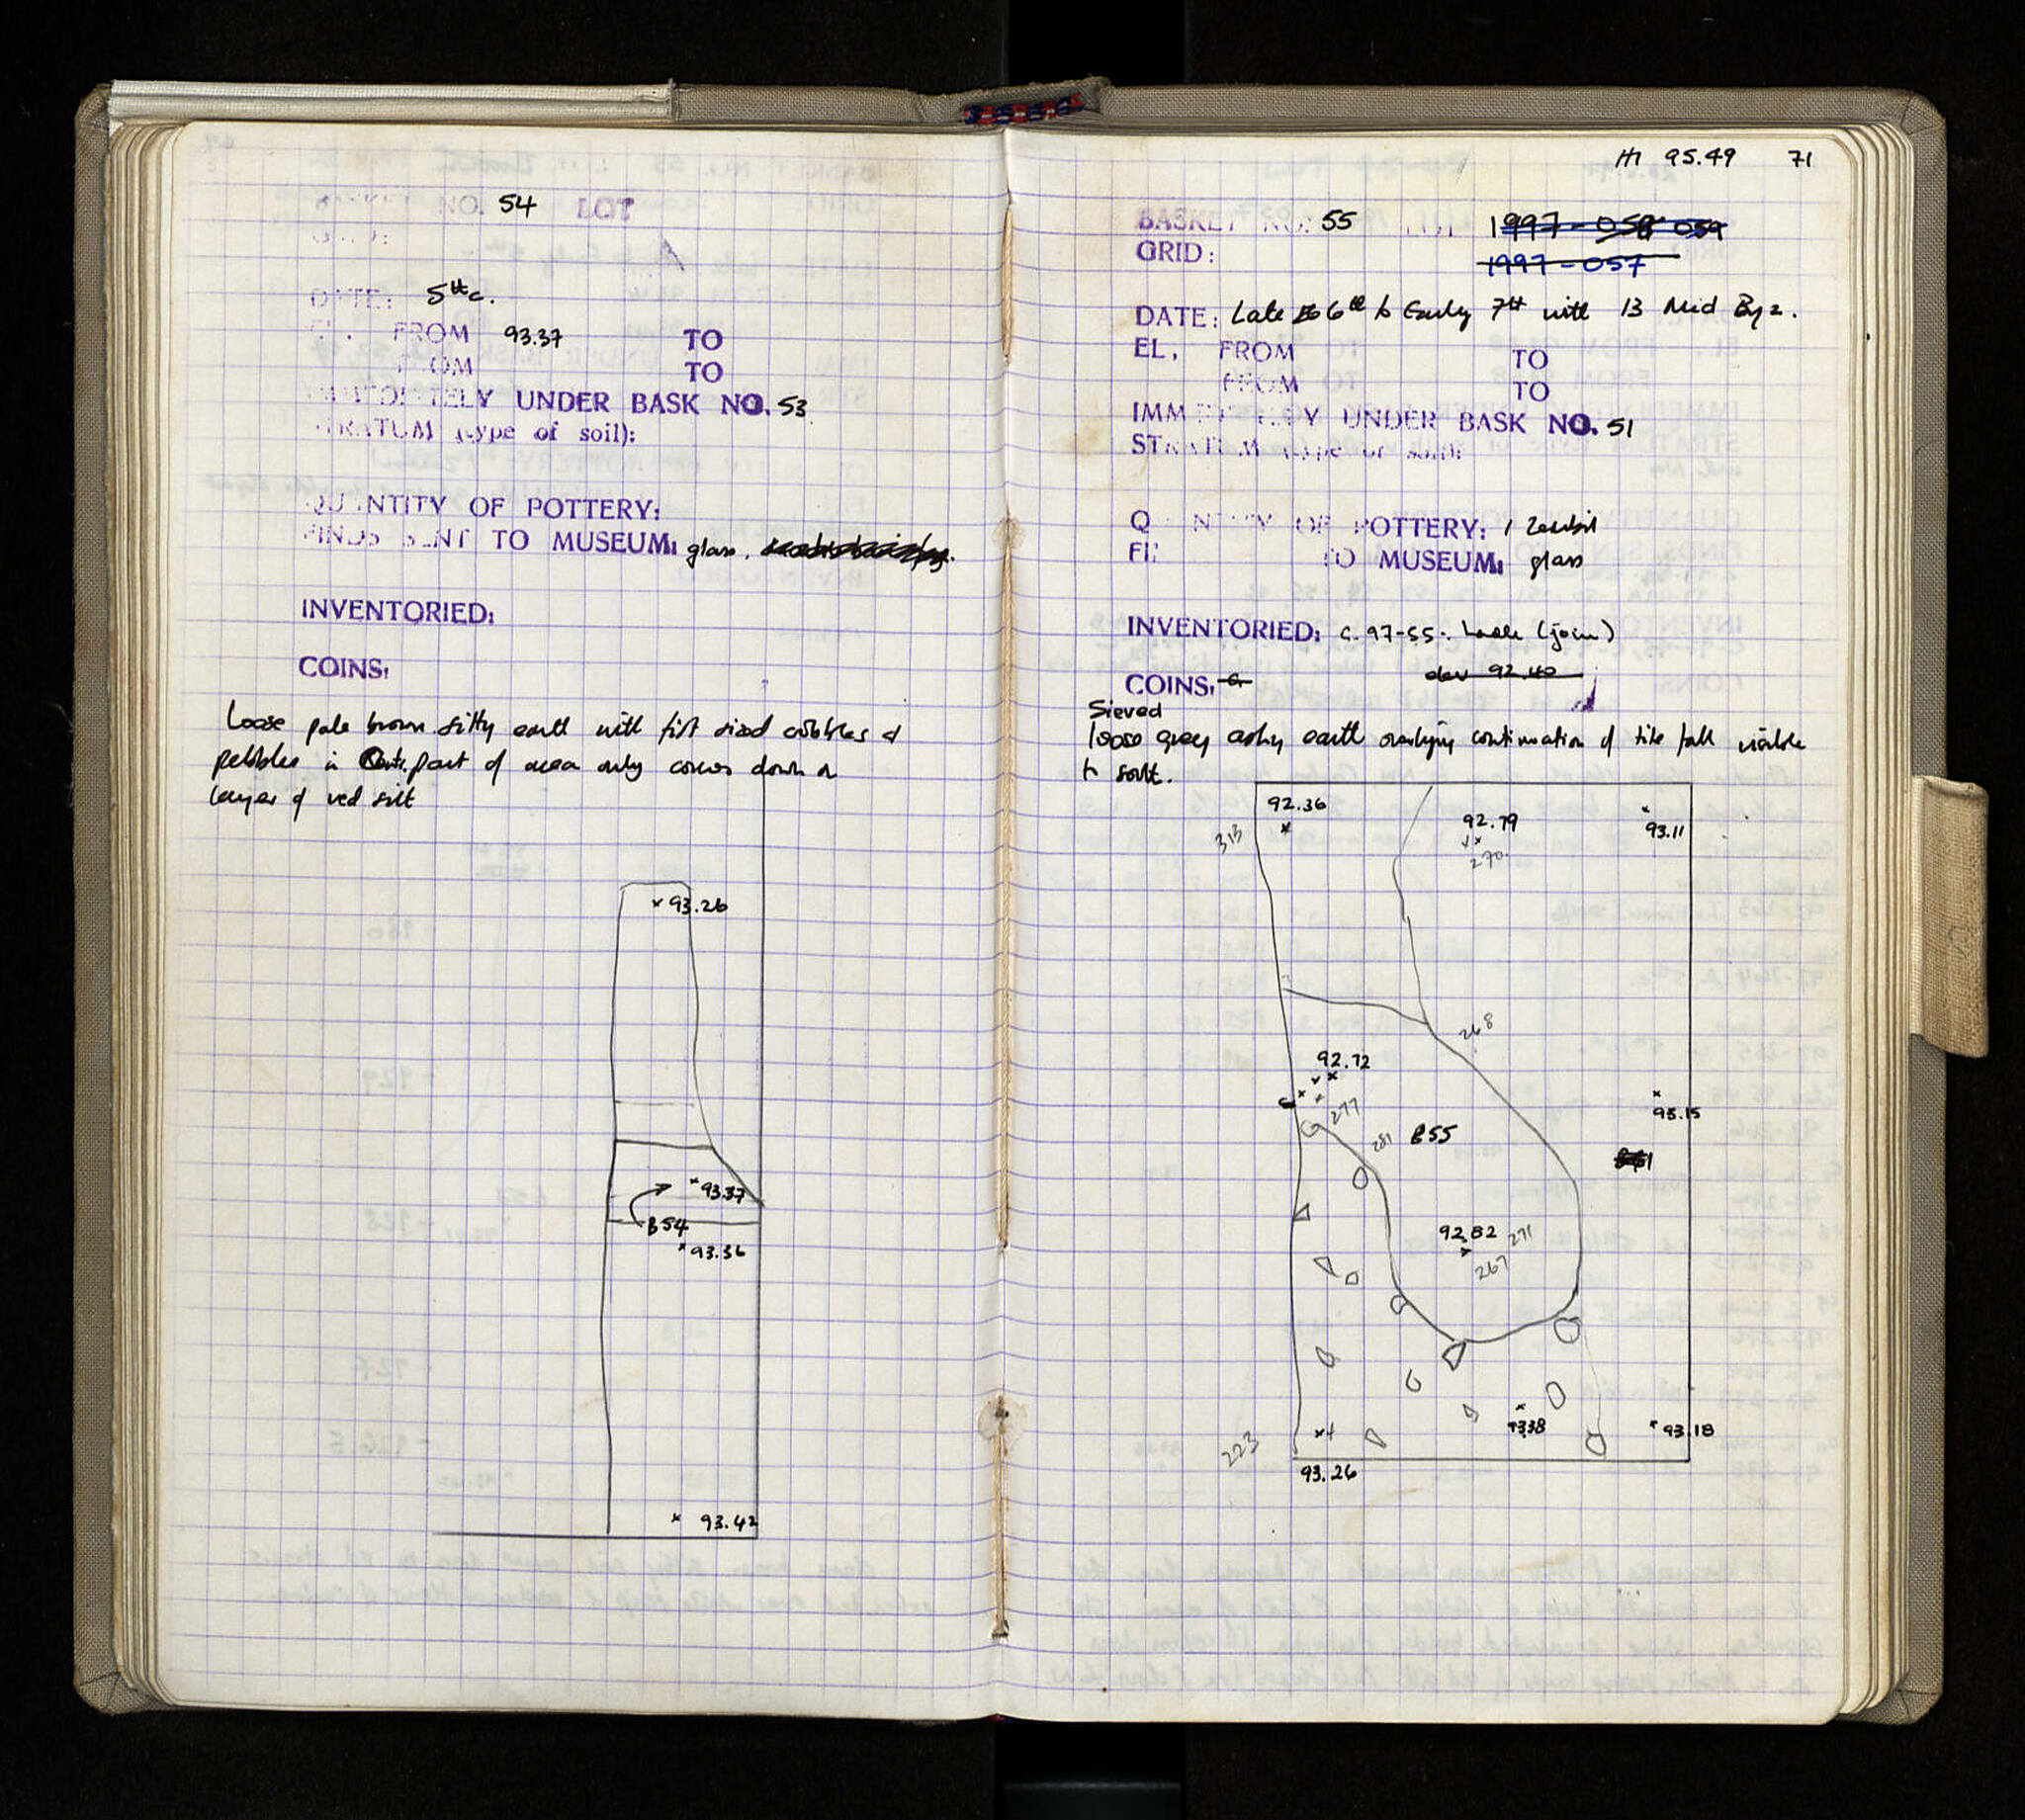 NO. 54 LOT
DATE: 5th c.
EL. FROM 93.37 TO
FROM TO
IMMEDIATELY UNDER BASK NO. 53
STRATUM (type of soil):
QUANTITY OF POTTERY:
FINDS SENT TO MUSEUM: glass.
INVENTORIED:
COINS:
Loose pale brown silty earth with fist sized cobbles &
pebbles in part of area only comes down on
layer of red silt
93.26
93.37
B54
93.36
93.42
HI 95.49 71
BASKET NO: 55 LOT 1997-058 059
GRID: 1997-057
DATE: Late 6th to Early 7th with 13 Mid Byz.
EL. FROM TO
FROM TO
IMMEDIATELY UNDER BASK NO. 51
STRATUM (type of soil):
QUANTITY OF POTTERY: 1 Zembil
FINDS SENT TO MUSEUM: glass
INVENTORIED: C.97-55. (join)
92.40
COINS:
Sieved
loose grey ashy earth overlying continuation of tile fall visible
to south.
92.36
313
92.79
270
93.11
268
92.72
277
281 B55
93.15
92.82 271
267
93.38
93.18
223
93.26